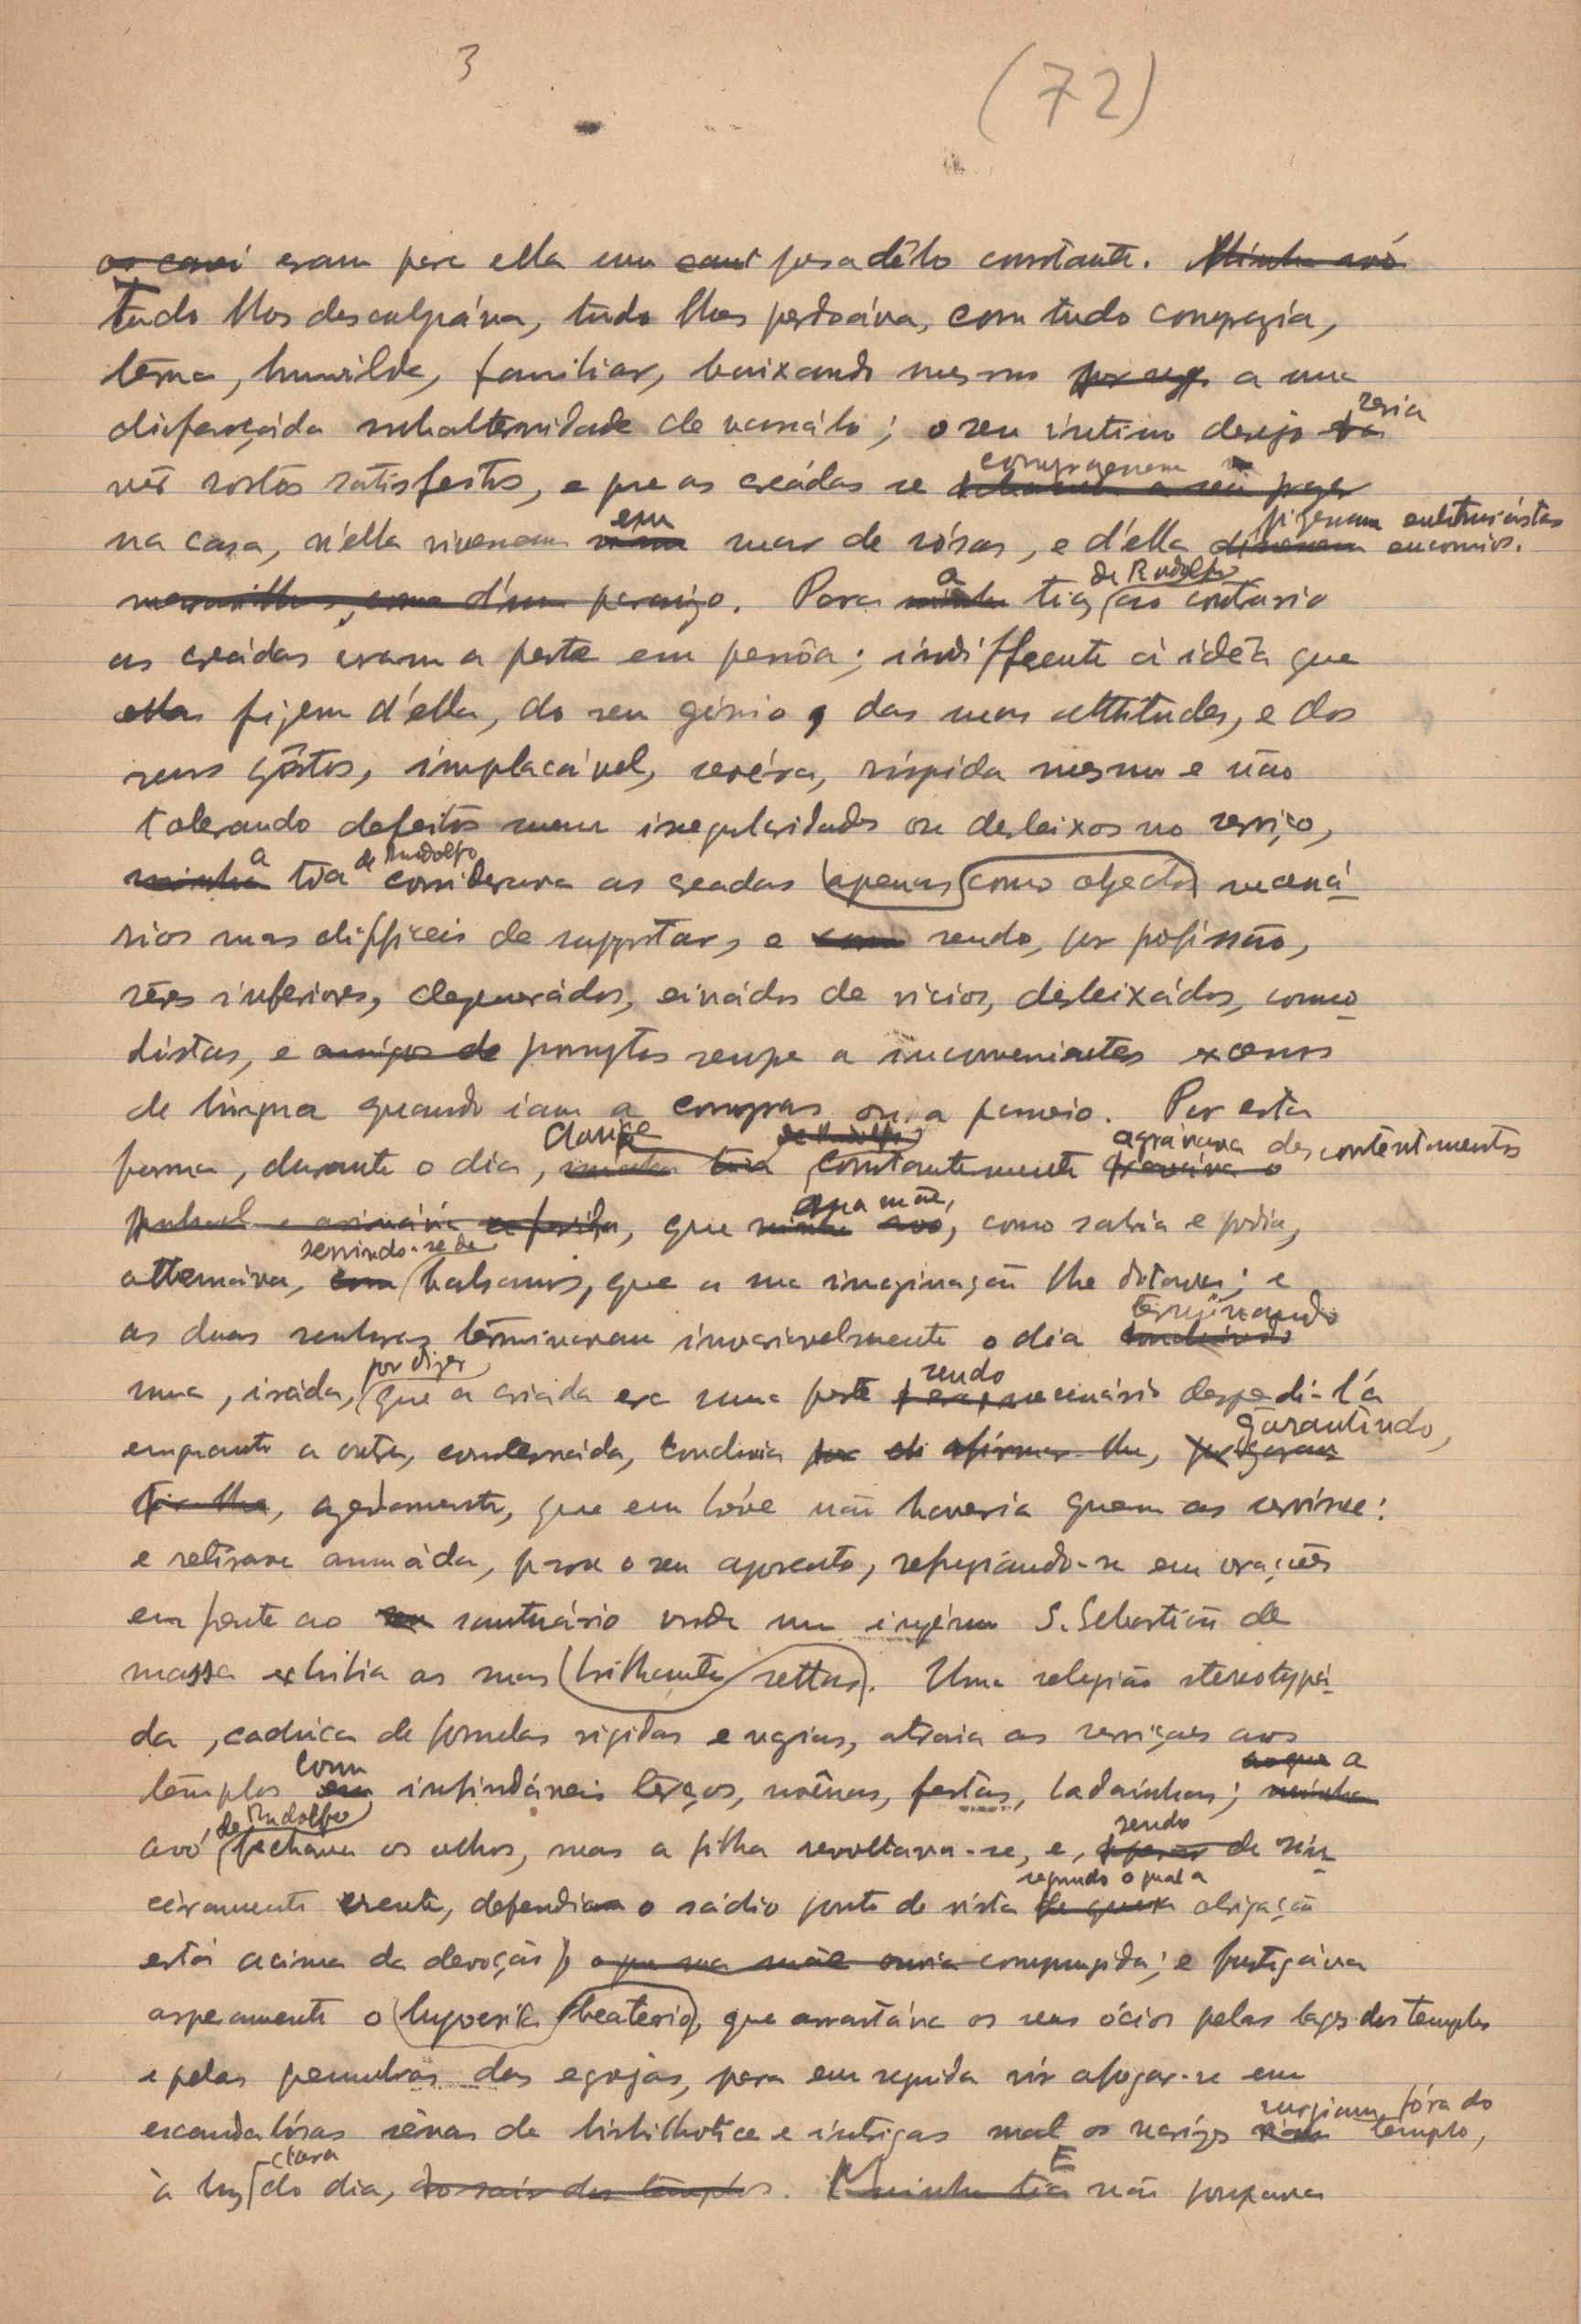 3
(72)
eram para ella um pesadêlo constante.
Tudo lhes desculpáva, tudo lhes perdoáva, com tudo comprazia,
terna, humilde, familiar, baixando mesmo a uma
disfarçáda subalternidade de vassálo; o seu intimo desejo seria
vêr rostos satisfeitos, e que as creádas se comprazessem
na casa, n'ella vivessem em mar de rósas, e d'ella fizessem enthusiástas encomios.
Para a tia de Rudolfo ao contrario
as creádas eram a peste em pessôa; indifferente á idêa que
fizessem d'ella, do seu génio, das suas attitudes, e dos
seus gôstos, implacável, sevéra, rispida mesmo e não
tolerando defeitos nem irregularidades ou desleixos no serviço,
a tia de Rudolfo considerava as creadas apenas como objectos necessá-
rios mas difficeis de supportar, e sendo, por profissão,
sêres inferiores, degenerádos, eivádos de vicios, desleixádos, como-
distas, e promptos sempre a inconvenientes excessos
de lingua quando iam a compras ou a passeio. Por esta
forma, durante o dia, constantemente agraváva descontentamentos
, que sua mãe, como sabia e podia,
attenuáva, servindo-se de balsamos, que a sua imaginação lhe ditava; e
as duas senhoras términavam invariavelmente o dia
uma, iráda, por dizer que a criada era uma peste sendo necessário despedi-l'a
emquanto a outra, consternáda, concluia garantindo,
azedamente, que em bréve não haveria quem as servisse:
e retirava amuáda, para o seu aposento, refugiando-se em orações
em frente ao santuário onde um ingénuo S. Sebastião de
massa exhibia as suas brilhantes settas. Uma religião stereotypá-
da, caduca de formulas rigidas e vazias, atraia as serviçaes aos
têmplos com infindáveis têrços, novênas, festas, ladaínhas; a
avó de Rudolfo fechava os olhos, mas a filha revoltava-se, e, sendo sin-
ceiramente crente, defendia o sádio ponto de vista segundo o qual a obrigação
está acima da devoção; e fustigáva
asperamente o hypocrita beaterio, que arrastáva os seus ócios pelas lages dos templos
e pelas penumbras das egrejas, para em seguida vir afogar-se em
escandalósas scênas de bisbilhotice e intrigas mal os narizes surgiam fóra do templo,
à luz clara do dia. E não poupava